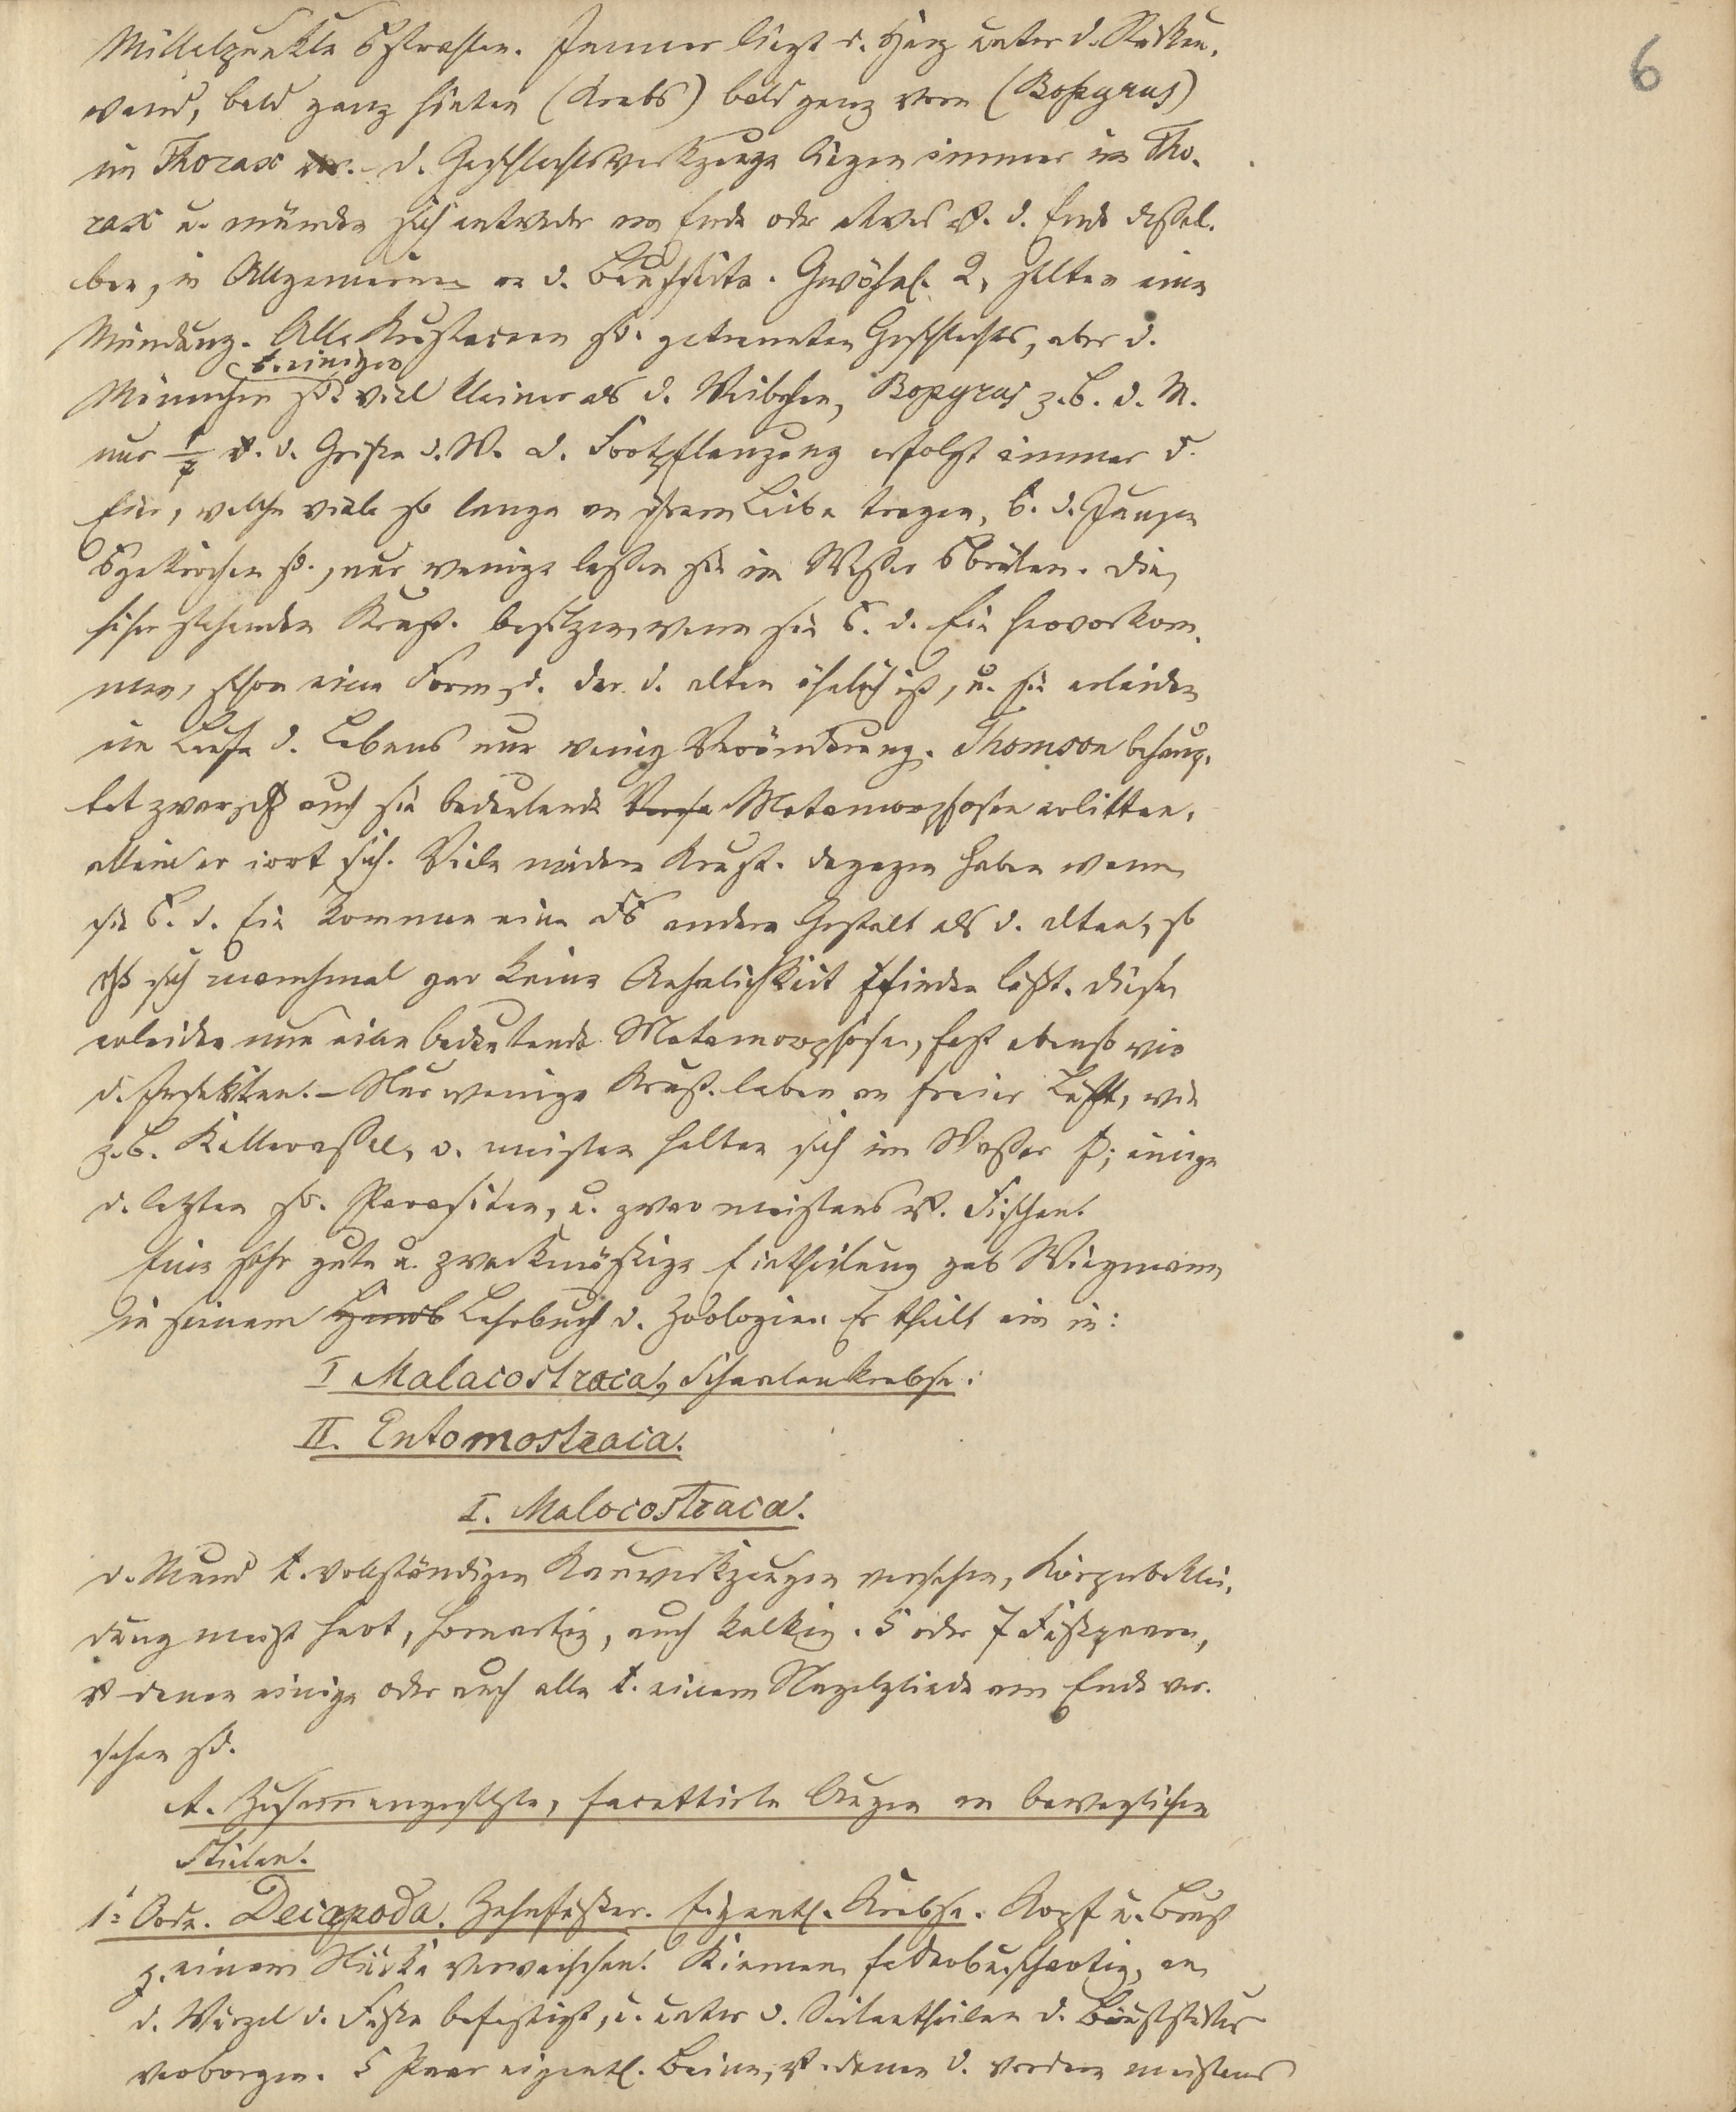 6
Mittelpunkte ausstrahlen. Immer liegt d. Herz unter d. Rücken-
wand, bald ganz hinten (Krebs) bald ganz vorn (Bopyrus)
im Thorax d. Geschlechtswerkzeuge liegen immer im Tho-
rax u. münden sich entweder am Ende oder etwas v. d. Ende dessel-
ben, im Allgemeinen an d. Bauchseite. Gewöhnl. 2, selten eine
Mündung. Alle Krustaceen sd. getrennten Geschlechts, aber d.
b. einigen
Männchen sd. viel kleiner als d. Weibchen, Bopyrus z.B. d. M.
nur v. d. Größe d. W. d. Fortpflanzung erfolgt immer d.
Eier, welche viele so lange an ihrem Leibe tragen, b. d. Jungen
ausgekrochen sd., nur wenige lassen sie im Wasser ausbrüten. Die
höher stehenden Krust. besitzen, wenn sie aus d. Eie hervorkom-
men, schon eine Form, d. der d. alten ähnlich ist, u. sie erleiden
im Laufe d. Lebens nur wenig Veränderung. Thomson behaup-
tet zwar, daß auch sie bedeutende Metamorphosen erlitten,
allein er irrt sich. Viele niedere Krust. dagegen haben wenn
sie aus d. Eie kommen eine andere Gestalt als d. alten, so
daß sich manchmal gar keine Aehnlichkeit finden läßt. Diese
erleiden nun eine bedeutende Metamorphose, fast ebenso wie
d. Insekten. – Nur wenige Krust. leben an freier Luft, wie
z.B. Kellerassel, d. meisten halten sich im Wasser auf; einige
d. letzten sd. Parasiten, u. zwar meistens v. Fischen.
Eine sehr gute u. zweckmäßige Eintheilung gab Wiegmann
in seinem Handb Lehrbuch d. Zoologie. Er theilt ein in:
I Malacostraca, Schaalenkrebse:
II. Entomostraca.
I. Malocostraca.
d. Mund t. vollständigen Kauwerkzeugen versehen, Körperbeklei-
dung meist hart, hornartig, auch kalkig. 5 oder 7 Fußpaare,
v denen einige oder auch alle t. einem Nagelgliede am Ende ver-
sehen sd.
A. Zusammengesetzte, facettirte Augen an beweglichen
Stielen.
1= Ordn. Decapoda. Zehnfüßer. Eigentl. Krebse. Kopf u. Brust
z. einem Stücke verwachsen. Kiemen federbuschartig, an
d. Wurzel d. Füße befestigt, u. unter d. Seitentheilen d. Brustschildes
verborgen. 5 Paar eigentl. Beine, v. denen d. vordern meistens